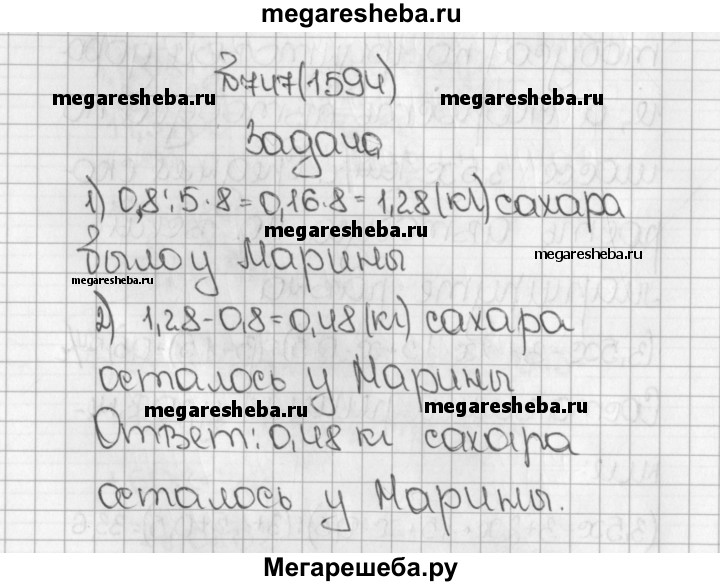 megaresheba.ru
№747(1594)
megaresheba.ru megaresheba.ru
Задача
1) 0,8:5·8=0,16·8=1,28(кг) сахара
megaresheba.ru
было у Марины megaresheba.ru
megaresheba.ru
2) 1,28-0,8=0,48(кг) сахара
осталось у Марины
megaresheba.ru megaresheba.ru
Ответ: 0,48 кг сахара
осталось у Марины.
Мегарешеба.ру